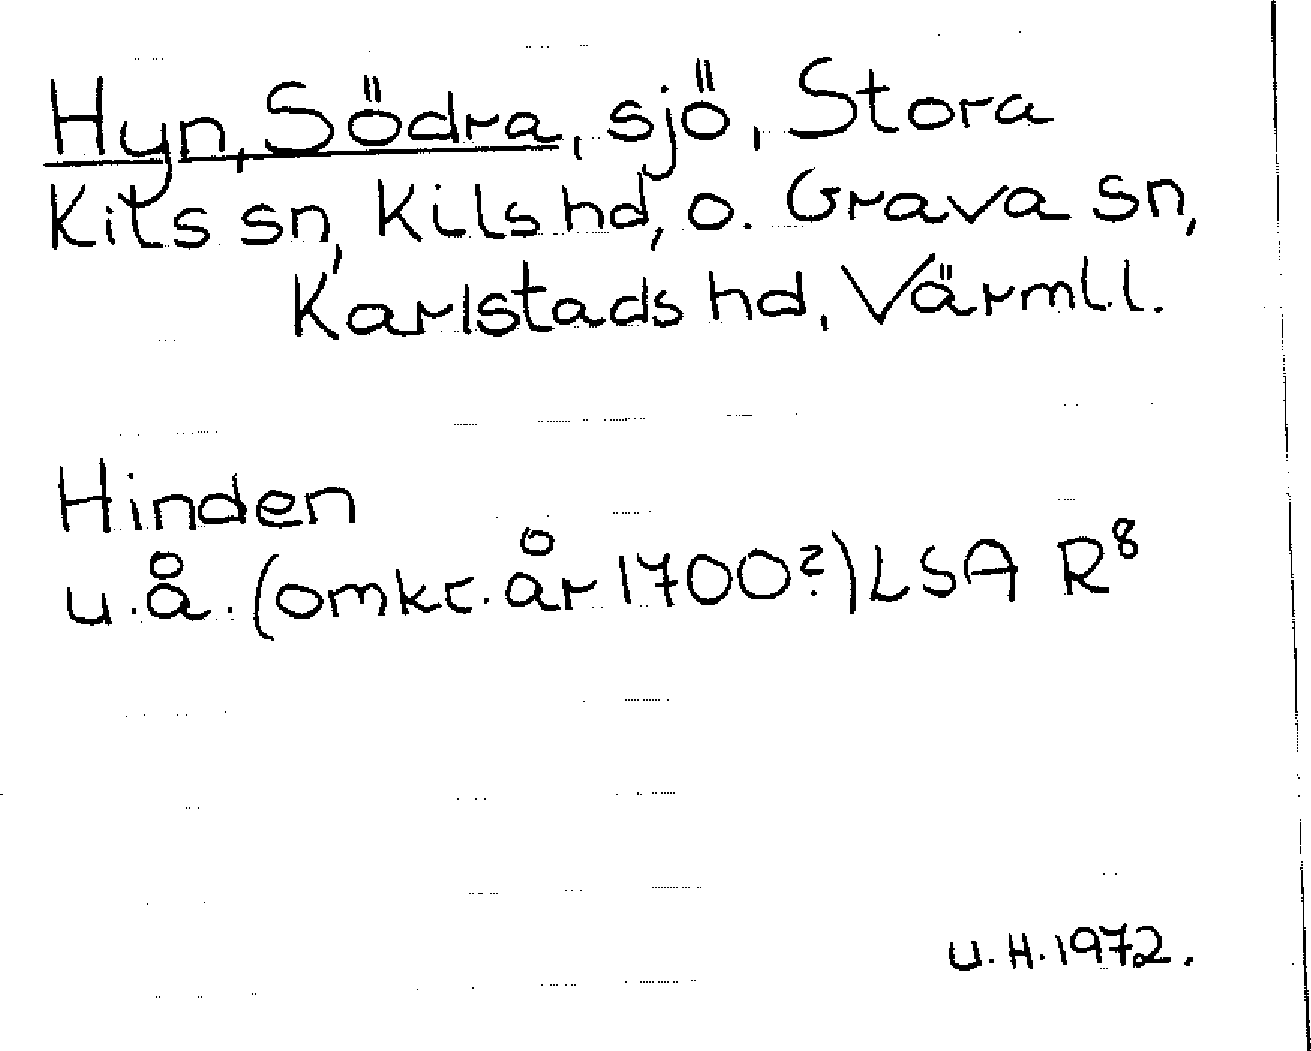 Hyn, Södra, sjö, Stora
Kils sn, Kils hd, o. Grava sn,
Karlstads hd, Värml.l.
Hinden
u.å. (omkr. år 1700?) LSA R⁸
U.H. 1972.